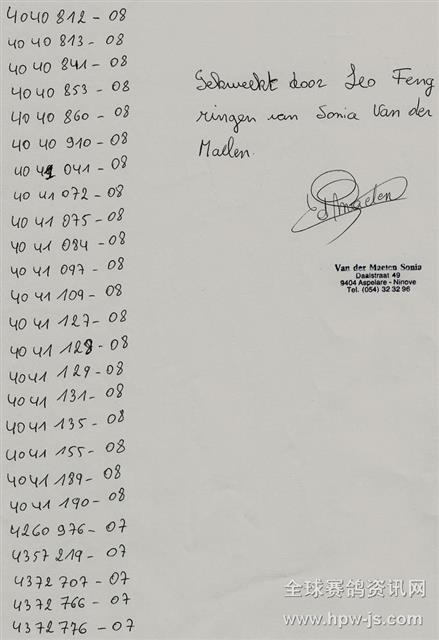 4040 812-08
4040 813-08
4040 841-08
4040 853-08
4040 860-08
4040 910-08
4041 041-08
4041 072-08
4041 075-08
4041 084-08
4041 097-08
4041 109-08
4041 127-08
4041 128-08
4041 129-08
4041 131-08
4041 135-08
4041 155-08
4041 189-08
4041 190-08
4260 976-07
4357 219-07
4372 707-07
4372 766-07
4372 776-07
Gekweekt door Leo Feng
ringen van Sonia Van der
Maelen.
Van der Maeten Sonia
Daalstraat 49
9404 Aspelare - Ninove
Tel. (054) 32 32 96
全球赛鸽资讯网
http://www.hpw-js.com